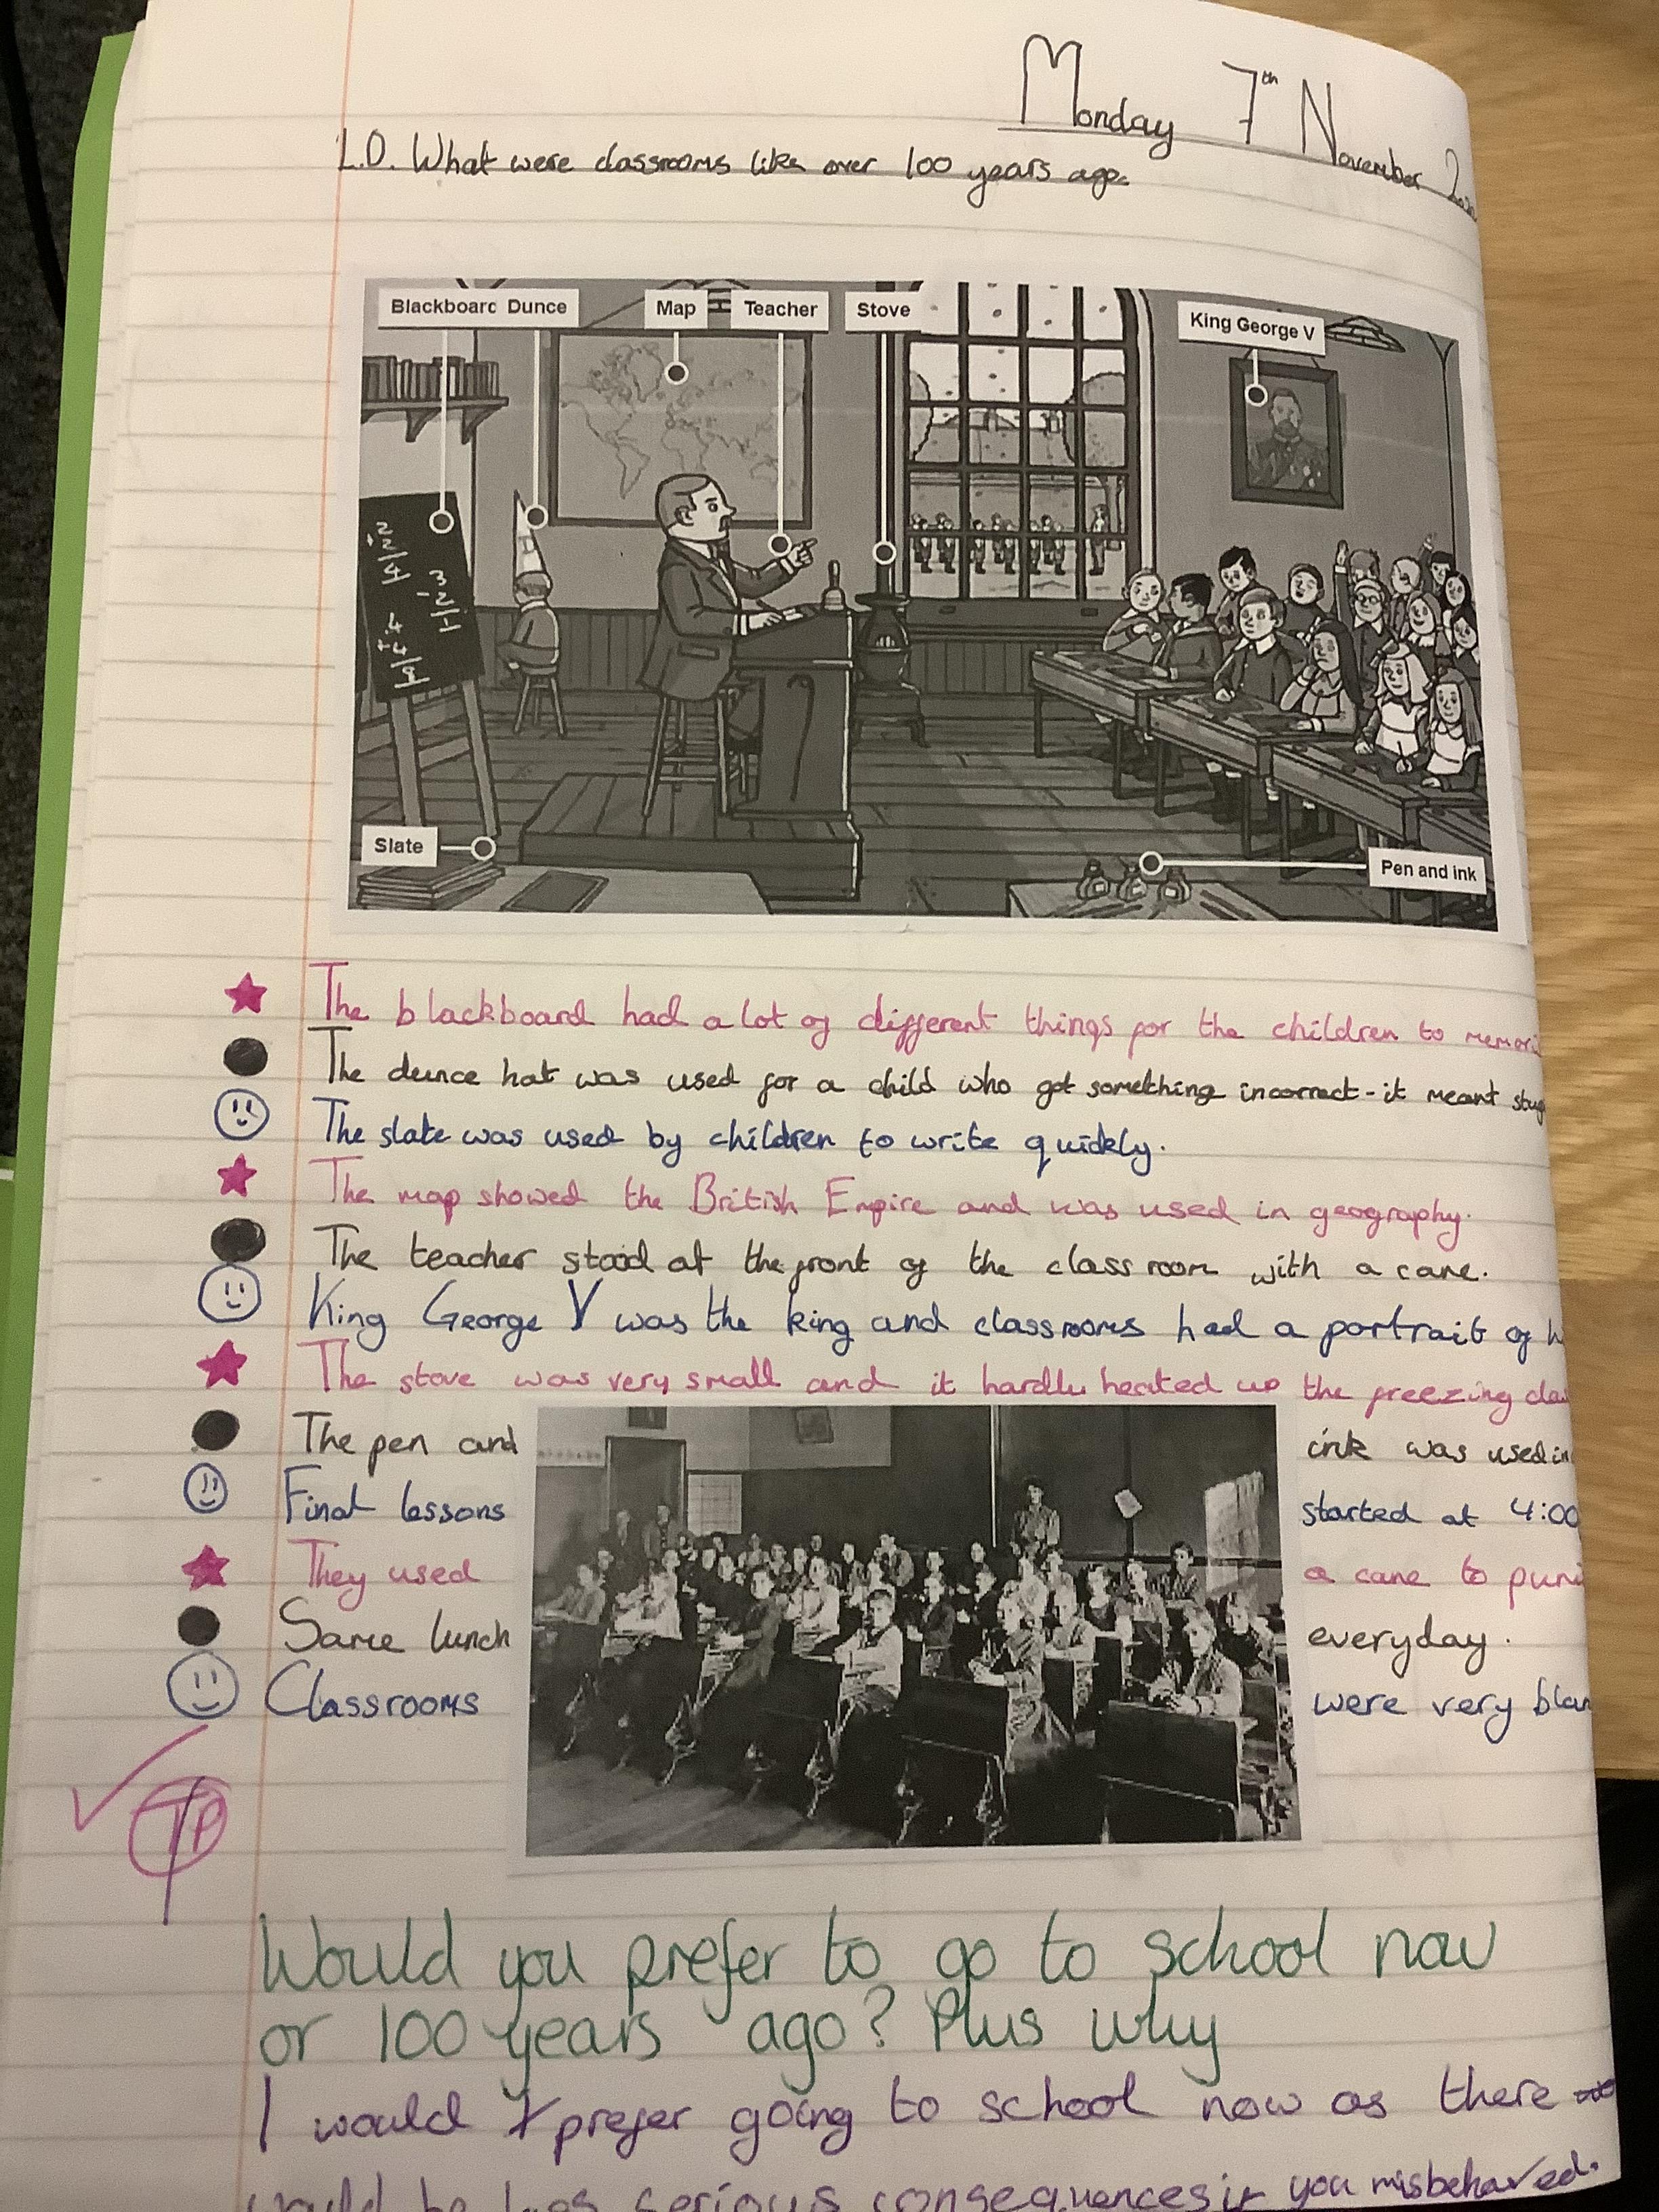 Monday 7th November
L.O. What were classrooms like over 100 years ago.
Blackboard Dunce Map Teacher Stove King George V
2
+2
4
3
-2
1
4
+4
8
Slate
Pen and ink
The blackboard had a lot of different things for the children to
The dunce hat was used for a child who got something incorrect - it meant
The slate was used by children to write quickly.
The map showed the British Empire and was used in geography.
The teacher stood at the front of the classroom with a cane.
King George V was the king and classrooms had a portrait of
The stove was very small and it hardly heated up the freezing
The pen and ink was used in
Final lessons started at 4:00
They used a cane to
Same lunch everyday.
Classrooms were very
TP
Would you prefer to go to school now
or 100 years ago? Plus why
I would prefer going to school now as there
would be less serious consequences if you misbehaved.